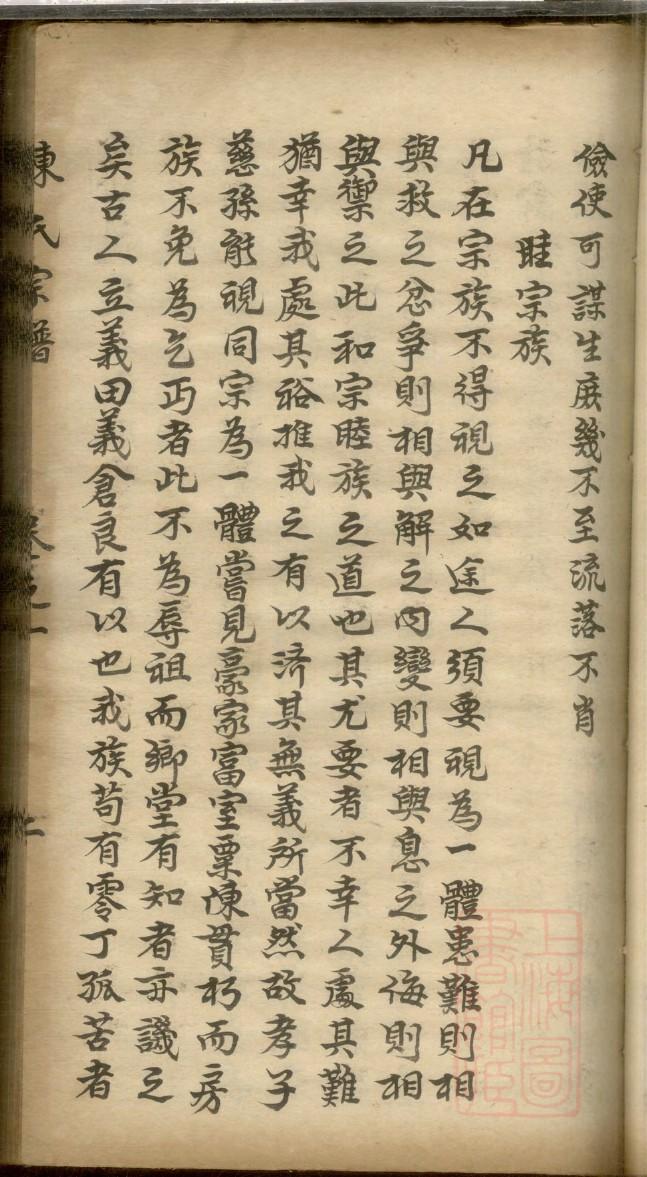 儉使可謀生庶幾不至流落不肖
睦宗族
凡在宗族不得視之如途人須要視為一體患難則相
與救之忿爭則相與解之內變則相與息之外侮則相
與禦之此和宗睦族之道也其尤要者不幸人處其難
猶幸我處其裕推我之有以濟其無義所當然故孝子
慈孫能視同宗為一體嘗見豪家富室粟陳貫朽而房
族不免為乞丐者此不為辱祖而鄉堂有知者亦譏之
矣古人立義田義倉良有以也我族苟有零丁孤苦者
陳氏宗譜 卷之一
上海圖書館藏